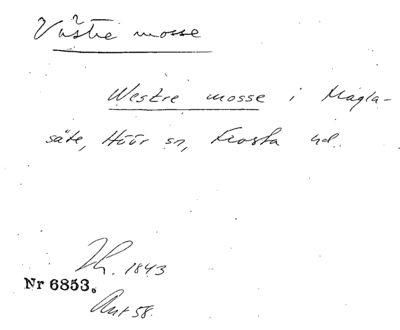 Västre mosse
Westre mosse i Magla-
säte, Höör sn, Frosta hd.
1843
Nr 6853.
Ant 58.